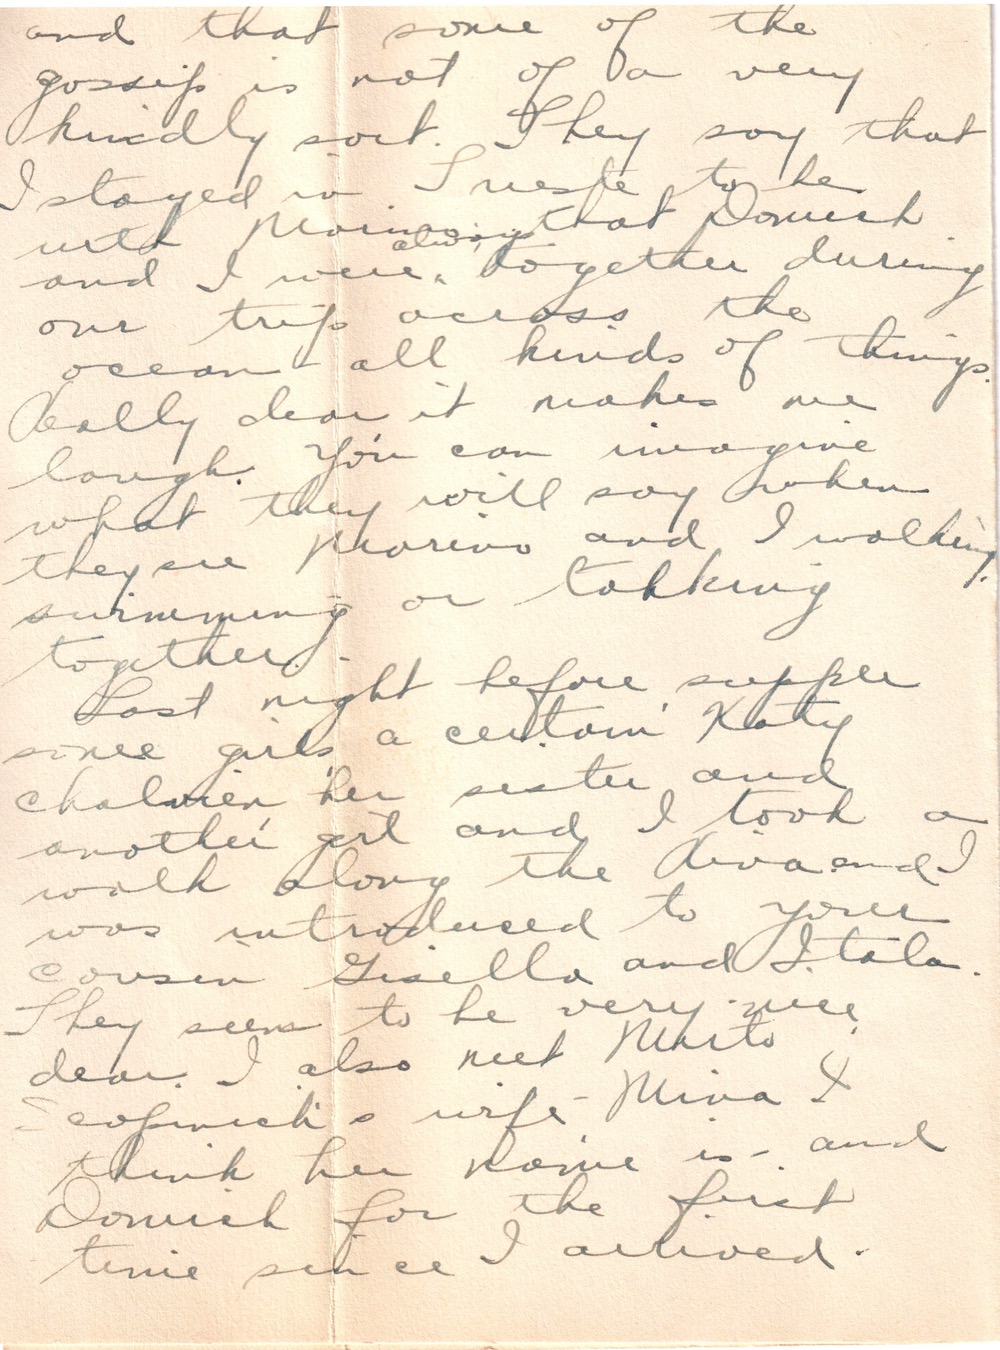 and that some of the
gossip is not of a very
kindly sort. They say that
I stayed in Trieste to be
with Marino, that Domich
always
and I were together during
our trip across the
ocean - all kinds of things.
Really dear it makes me
laugh. You can imagine
what they will say when
they see Marino and I walking,
swimming or talking
together. -
Last night before supper
some girls a certain Katy
her sister and
another girl and I took a
walk along the Riva and I
was introduced to your
cousin Gisella and Itala.
They seem to be very nice
dear. I also met
wife - Mina I
think her name is - and
Domich for the first
time since I arrived.